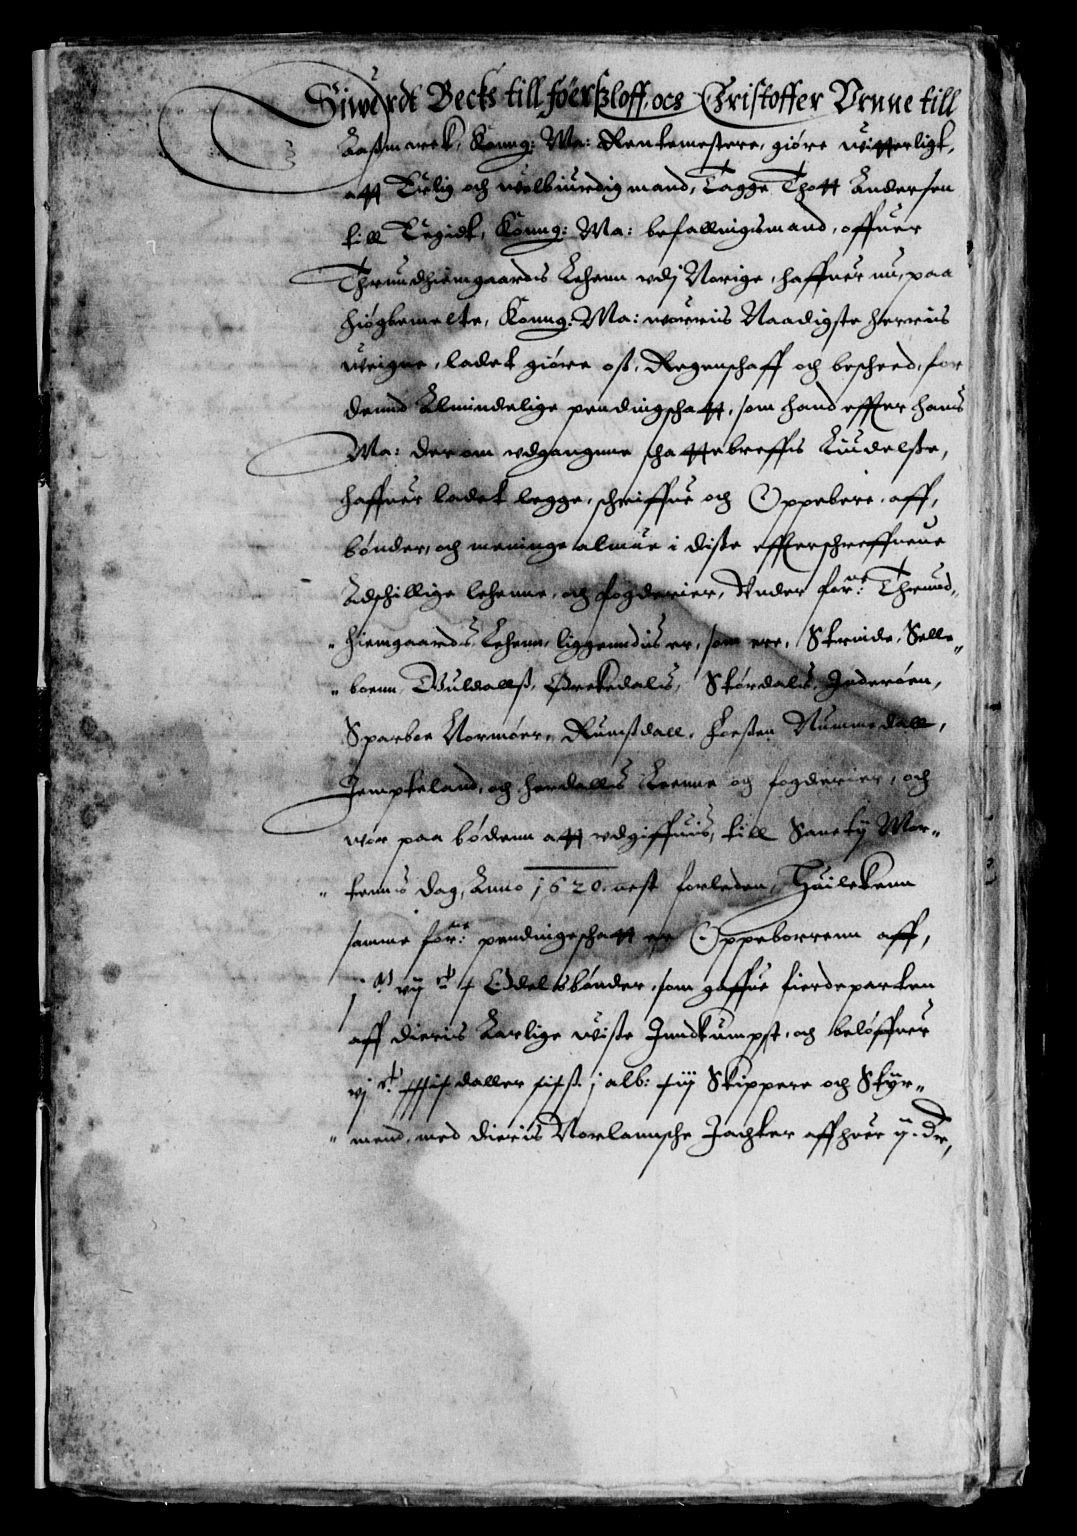 Siwerdt Becks till föersloff, ocs Christoffer Vrnne till
Aasmarck, Konng: Ma: Rentemestere, giöre witterligt,
att Erlig och welbiurdig mand, Tagge Thott Andersen
till Eegidt, Konng: Ma: befallnigsmand, offuer
Thrundhiemgaardts Lehenn vdj Norige, haffuer nu, paa
höigbemelte, Konng: Ma: worris Naadigste herris
weigne, ladet giöre oss, Regenschaff och bescheed, for
dennd Almindelige pendingschatt, som hand effter hans
Ma: der om vdgangnne schattebreffs Liudelsse,
haffuer ladet legge, schriffue och Oppebere, aff,
bönder, och meninge almue i disse effterschreffneue
Adschillige lehenne, och fogderier, Vnder forne: Thrund„
„ hiemgaards Lehenn, liggenndis er, som ere, Strinde, Sell„
„ boenn, Guldallss, Örckedals, Stördals, Inderöen,
Sparboe Normöer, Rumssdall, Fossen Nummedall,
Jempteland, och Herdallis Leenne og fogderier, och
wor paa bödenn att vdgiffuis, till Sancty Mor„
„ tenns dag, Anno 1620. nest forleden, Huilckenn
samme forne: pendingeschatt er Oppborrenn aff,
Oddelsbönder, som gaffue fierdeparten
aff dieris Aarlige wisse Inndkumpst, och belöffuer
daller j alb: Skippere och Styr„
„ mend, med dieris Norlannsche Jachter aff huer ij. dr,